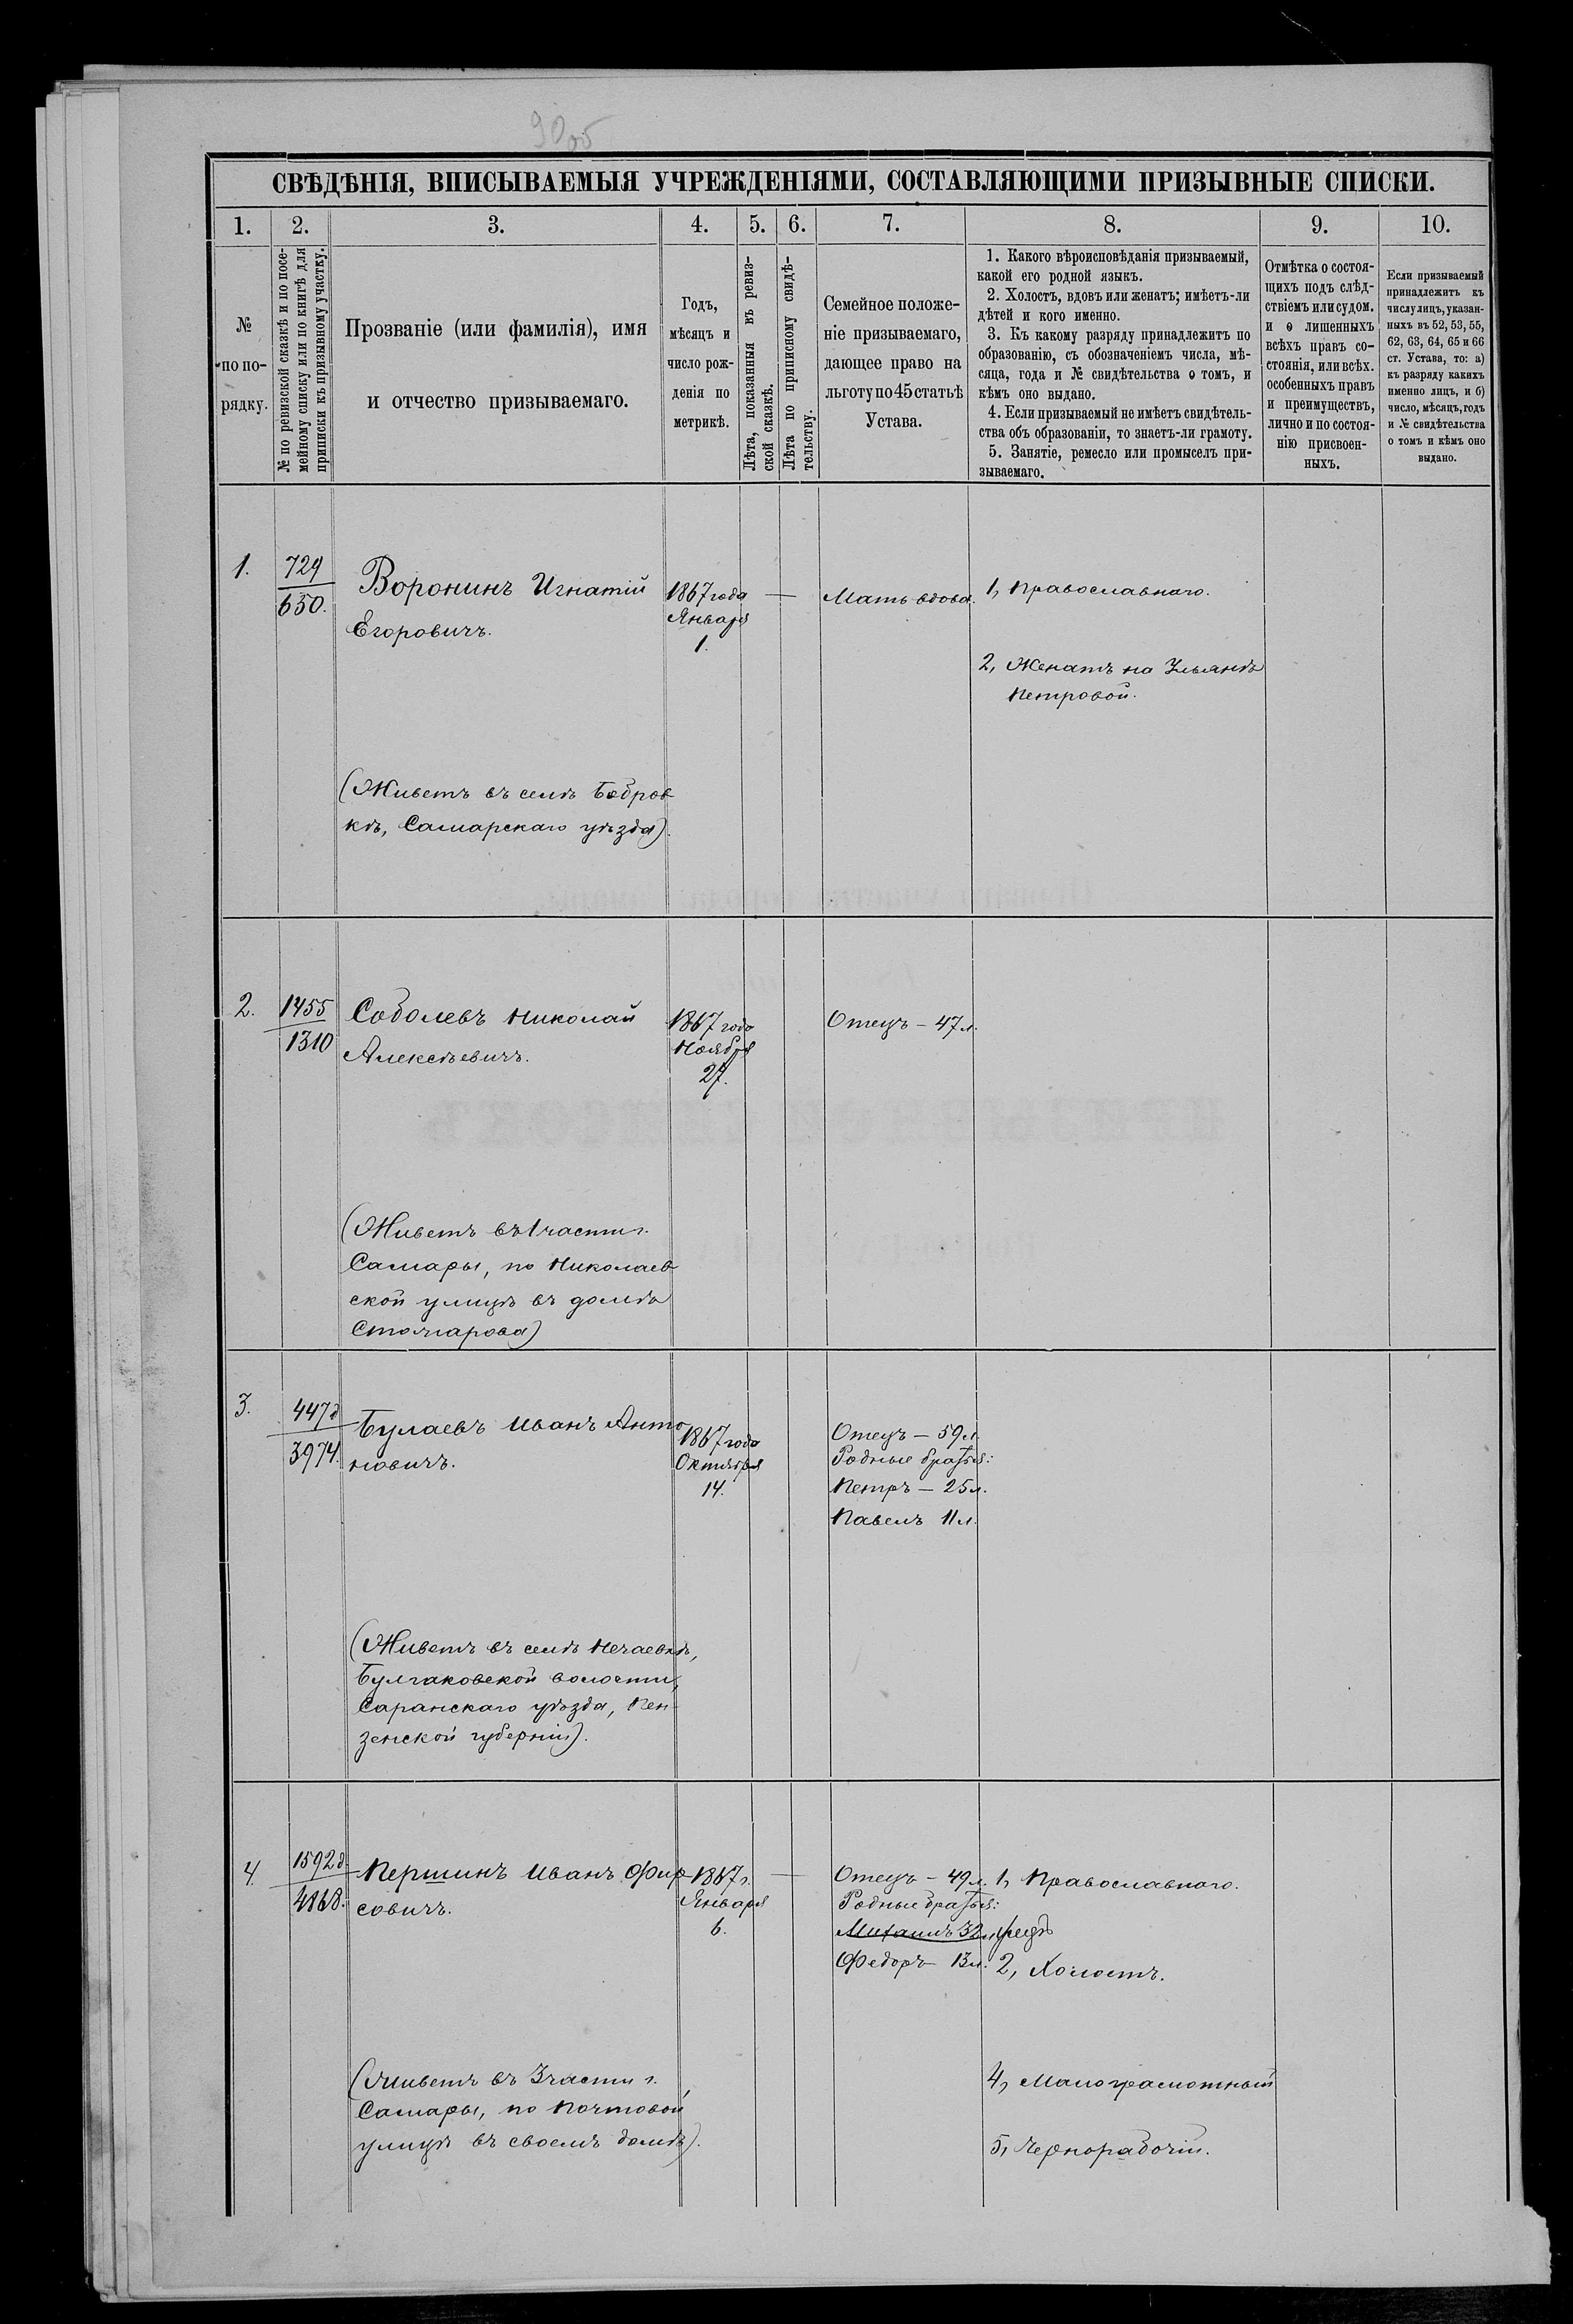 90об
СВѢДѢНІЯ, ВПИСЫВАЕМЫЯ УЧРЕЖДЕНІЯМИ, СОСТАВЛЯЮЩИМИ ПРИЗЫВНЫЕ СПИСКИ.
1.
2.
3.
4.
5.
6.
7.
8.
9.
10.
№
по по-
рядку.
№ по ревизской сказкѣ и по посе-
мейному списку или по книгѣ для
приписки къ призывному участку.
Прозваніе (или фамилія), имя
и отчество призываемаго.
Годъ,
мѣсяцъ и
число рож-
денія по
метрикѣ.
Лѣта, показанныя въ ревиз-
ской сказкѣ.
Лѣта по приписному свидѣ-
тельству.
Семейное положе-
ніе призываемаго,
дающее право на
льготу по 45 статьѣ
Устава.
1. Какого вѣроисповѣданія призываемый,
какой его родной языкъ.
2. Холостъ, вдовъ или женатъ; имѣетъ-ли
дѣтей и кого именно.
3. Къ какому разряду принадлежитъ по
образованію, съ обозначеніемъ числа, мѣ-
сяца, года и № свидѣтельства о томъ, и
кѣмъ оно выдано.
4. Если призываемый не имѣетъ свидѣтель-
ства объ образованіи, то знаетъ-ли грамоту.
5. Занятіе, ремесло или промыселъ при-
зываемаго.
Отмѣтка о состоя-
щихъ подъ слѣд-
ствіемъ или судом.
и о лишенныхъ
всѣхъ правъ со-
стоянія, или всѣх.
особенныхъ правъ
и преимуществъ,
лично и по состоя-
нію присвоен-
ныхъ.
Если призываемый
принадлежитъ къ
числу лицъ, указан-
ныхъ въ 52, 53, 55,
62, 63, 64, 65 и 66
ст. Устава, то: а)
къ разряду какихъ
именно лицъ, и б)
число, мѣсяцъ, годъ
и № свидѣтельства
о томъ и кѣмъ оно
выдано.
1.
729
650.
Воронинъ Игнатій
Егоровичъ.
1867 года
Января
1.
—
Мать вдова.
1, Православнаго.
2, Женатъ на Ульянѣ
Петровой.
(Живетъ въ селѣ Бобров
кѣ, Самарскаго уѣзда).
2.
1455
1310
Соболевъ Николай
Алексѣевичъ.
1867 года
Ноября
27.
Отецъ – 47 л.
(Живетъ въ 1 части г.
Самары, по Николаев
ской улицѣ въ домѣ
Столярова)
3.
447д
3974.
Булаевъ Иванъ Анто
новичъ.
1867 года
Октября
14.
Отецъ – 59 л.
Родные братья:
Петръ – 25 л.
Павелъ 11 л.
(Живетъ въ селѣ Нечаевкѣ,
Булгаковской волости,
Саранскаго уѣзда, Пен-
зенской губерніи).
4.
1592 д.
4868.
Першинъ Иванъ Фир
совичъ.
1867 г.
Января
6.
—
Отецъ – 49 л.
Родные братья:
Михаилъ 32 л.
Федоръ – 13 л.
1, Православнаго.
2, Холостъ.
4, Малограмотный
5, Чернорабочій.
(Живетъ въ 3 части г.
Самары, по Почтовой
улицѣ въ своемъ домѣ).